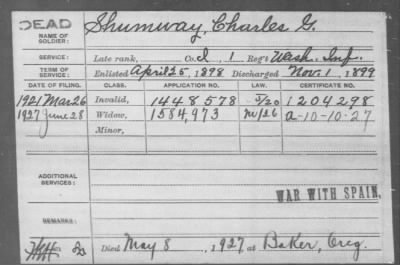 DEAD Shumway, Charles G.
NAME OF SOLDIER:
SERVICE: Late rank, Co. I, 1 Reg't Wash. Inf.
TERM OF SERVICE: Enlisted April 25, 1898 Discharged Nov. 1, 1899
DATE OF FILING. CLASS. APPLICATION NO. LAW. CERTIFICATE NO.
1921 Mar 26 Invalid, 1448578 5/20 1204298
1927 June 28 Widow, 1584,973 M/26 a-10-10-27
Minor,
ADDITIONAL SERVICES:
WAR WITH SPAIN,
REMARKS:
Died May 8, 1927 at Baker, Oreg.